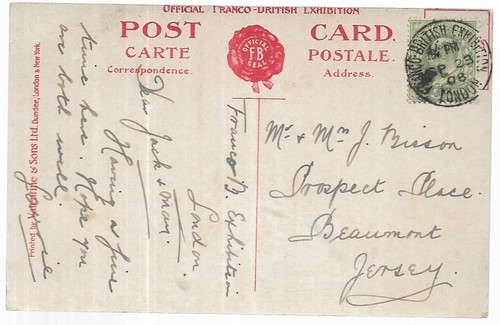 OFFICIAL FRANCO-BRITISH EXHIBITION
POST CARD.
CARTE POSTALE.
Correspondence. Address.
OFFICIAL
F.B
SEAL
FRANCO-BRITISH EXHIBITION
LONDON
Franco B. Exhibition
London
Dear Jack & May.
Having a fine
time here. Hope you
are both well.
Mr & Mrs J. Bisson
Prospect Place.
Beaumont
Jersey.
Printed by Valentine & Sons Ltd. Dundee, London & New York.